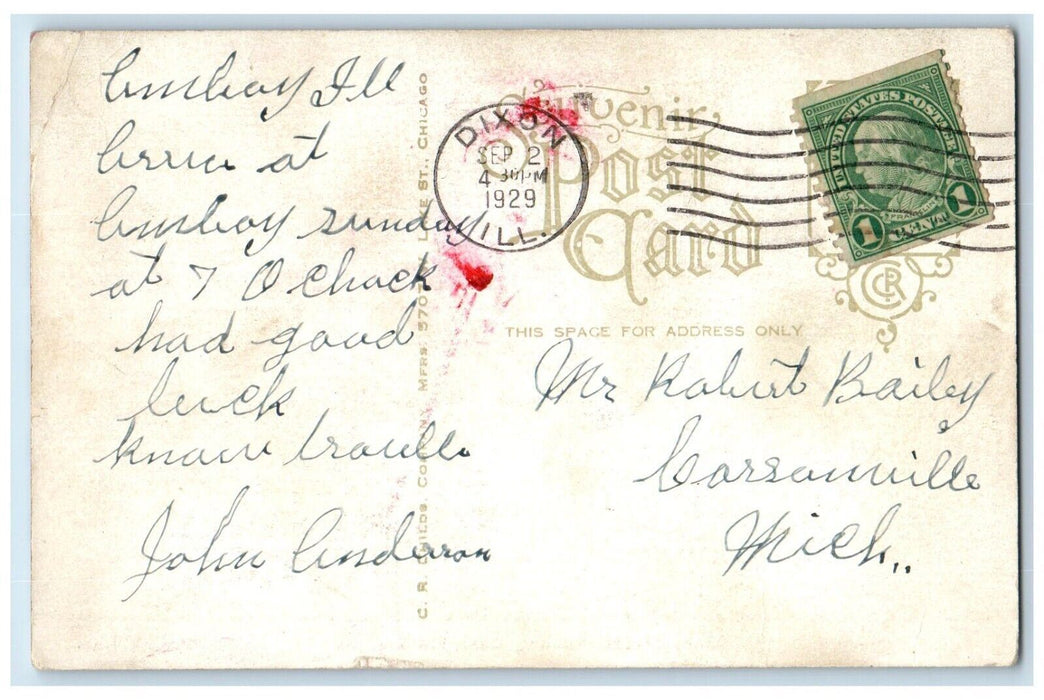 Amboy Ill
Arrive at
Amboy sunday
at 7 O chock
had good
luck
know troulle
John Anderson
C. R. CHILDS COMPANY, MFRS. 570 ST., CHICAGO
Souvenir
Post
Card
DIXON
SEP 2
4 30 PM
1929
ILL.
UNITED STATES POSTAGE
FRANKLIN
1 CENT 1
CRC
THIS SPACE FOR ADDRESS ONLY
Mr Robert Bailey
Carsonville
Mich.